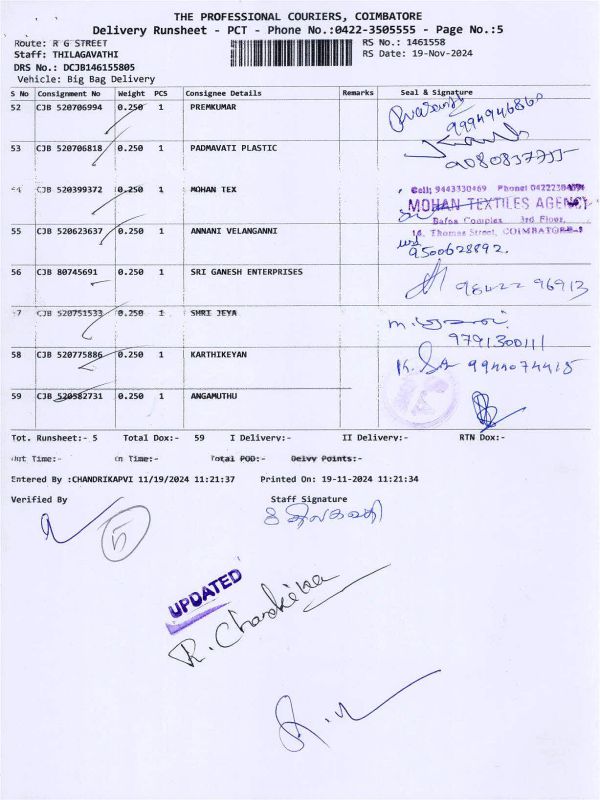 THE PROFESSIONAL COURIERS, COIMBATORE
Delivery Runsheet - PCT - Phone No.:0422-3505555 - Page No.:5
Route: R G STREET
RS No.: 1461558
Staff: THILAGAVATHI
RS Date: 19-Nov-2024
DRS No.: DCJB146155805
Vehicle: Big Bag Delivery
S No Consignment No Weight PCS Consignee Details Remarks Seal & Signature
52 CJB 520706994 0.250 1 PREMKUMAR
9994946860
53 CJB 520706818 0.250 1 PADMAVATI PLASTIC
54 CJB 520399372 0.250 1 MOHAN TEX
Cell: 9443330469 Phone:
MOHAN TEXTILES AGENCY
Bafna Complex 3rd Floor,
16, Thomas Street, COIMBATORE-1
55 CJB 520623637 0.250 1 ANNANI VELANGANNI
9500628892.
56 CJB 80745691 0.250 1 SRI GANESH ENTERPRISES
98422 96913
57 CJB 520751533 0.250 1 SHRI JEYA
9791300111
58 CJB 520775886 0.250 1 KARTHIKEYAN
9944074415
59 CJB 520582731 0.250 1 ANGAMUTHU
Tot. Runsheet:- 5 Total Dox:- 59 I Delivery:- II Delivery:- RTN Dox:-
Out Time:- In Time:- Total POD:- Delvy Points:-
Entered By :CHANDRIKAPVI 11/19/2024 11:21:37 Printed On: 19-11-2024 11:21:34
Verified By Staff Signature
5
UPDATED
R. Chandrika